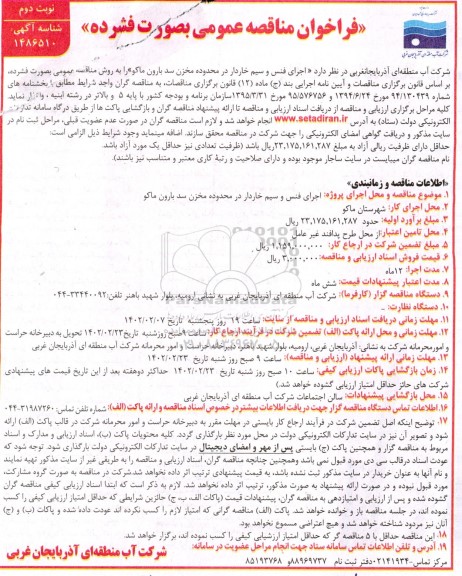 نوبت دوم
شناسه آگهی:
۱۴۸۶۵۱۰
«فراخوان مناقصه عمومی بصورت فشرده»
شرکت آب منطقه‌ای آذربایجانغربی در نظر دارد « اجرای فنس و سیم خاردار در محدوده مخزن سد بارون ماکو» را به روش مناقصه عمومی بصورت فشرده،
بر اساس قانون برگزاری مناقصات و آیین نامه اجرایی بند (ج) ماده (۱۲) قانون برگزاری مناقصات، به مناقصه گران واجد شرایط مطابق با بخشنامه های
شماره ۹۴/۱۳۰۴۳۹ مورخ ۱۳۹۴/۶/۲۴ و ۹۵/۵۷۶۷۵۶ مورخ 1395/3/31 سازمان برنامه و بودجه کشور با پایه ۵ و بالاتر در رشته ابنیه، واگذار نماید.
کلیه مراحل برگزاری ارزیابی و مناقصه از دریافت اسناد ارزیابی و مناقصه تا ارائه پیشنهاد مناقصه گران و بازگشایی پاکت ها از طریق درگاه سامانه تدارکات
الکترونیکی دولت (ستاد) به آدرس www.setadiran.ir انجام خواهد شد و لازم است مناقصه گران در صورت عدم عضویت قبلی، مراحل ثبت نام در
سایت مذکور و دریافت گواهی امضای الکترونیکی را جهت شرکت در مناقصه محقق سازند. اضافه مینماید وجود شرایط ذیل الزامی است:
حداقل دارای ظرفیت ریالی آزاد به مبلغ ۲۳,۱۷۵,۱۶۱,۲۸۷ریال باشد (ظرفیت تعدادی نیز حداقل یک مورد آزاد باشد.
نام مناقصه گران میبایست در سایت ساجار موجود بوده و دارای صلاحیت و رتبهٔ کاری معتبر و متناسب نیز باشند).
«اطلاعات مناقصه و زمانبندی»
۱. موضوع مناقصه و محل اجرای پروژه: اجرای فنس و سیم خاردار در محدوده مخزن سد بارون ماکو
۲. محل اجرای کار: شهرستان ماکو
۳. مبلغ برآورد اولیه: حدود ۲۳,۱۷۵,۱۶۱,۲۸۷ ریال
۴. محل تامین اعتبار: از محل طرح پدافند غیر عامل
۵. مبلغ تضمین شرکت در ارجاع کار: ۱,۱۵۹,۰۰۰,۰۰۰ ریال
۶. قیمت فروش اسناد ارزیابی و مناقصه: ۳,۰۰۰,۰۰۰ ریال
۷. مدت اجرا: ۱۲ماه
۸. مدت اعتبار پیشنهادات قیمت: شش ماه
۹. دستگاه مناقصه گزار (کارفرما): شرکت آب منطقه ای آذربایجان غربی به نشانی ارومیه، بلوار شهید باهنر تلفن: ۳۳۴۴۰۰۹۲-۰۴۴
۱۰. دستگاه نظارت: ..
۱۱. مهلت زمانی دریافت اسناد ارزیابی و مناقصه از سایت: ساعت ۱۹ روز پنجشنبه تاریخ ۱۴۰۲/۰۲/۰۷
۱۲. مهلت زمانی و محل ارائه پاکت (الف) تضمین شرکت در فرآیند ارجاع کار: ساعت ۹صبح روزشنبه تاریخ ۱۴۰۲/۰۲/۲۳ تحویل به دبیرخانه حراست
و امور محرمانه شرکت به نشانی: آذربایجان غربی، ارومیه، بلوار شهید باهنر، دبیرخانه حراست و امور محرمانه شرکت آب منطقه ای آذربایجان غربی
۱۳. مهلت زمانی ارائه پیشنهاد (ارزیابی و مناقصه): ساعت ۹ صبح روز شنبه تاریخ ۱۴۰۲/۰۲/۲۳
۱۴. زمان بازگشایی پاکات ارزیابی کیفی: ساعت ۱۰ صبح روز شنبه تاریخ ۱۴۰۲/۰۲/۲۳ حداکثر دوهفته بعد از این تاریخ قیمت های پیشنهادی
شرکت های حائز حداقل امتیاز ارزیابی گشوده خواهد شد.)
۱۵. محل بازگشایی پیشنهادات: سالن اجتماعات شرکت آب منطقه ای آذربایجان غربی
۱۶. اطلاعات تماس دستگاه مناقصه گزار جهت دریافت اطلاعات بیشتر در خصوص اسناد مناقصه و ارائه پاکت (الف): شماره تلفن تماس: ۳۱۹۸۷۲۶۰-۰۴۴
۱۷. توضیح اینکه اصل تضمین شرکت در فرآیند ارجاع کار بایستی در مهلت مقرر به دبیرخانه حراست و امور محرمانه شرکت در قالب پاکت (الف) ارائه
شود و تصویر آن نیز در سایت تدارکات الکترونیکی دولت در محل مورد نظر بارگذاری گردد. کلیه محتویات پاکت (ب)، اسناد ارزیابی و مدارک و اسناد
مربوط به مناقصه گزار و همچنین پاکت (ج) بایستی پس از مهر و امضای دیجیتال در سایت تدارکات الکترونیکی دولت بارگذاری شود. توجه شود که
عودت اسناد در قالب سی دی مورد قبول نمی باشد وهمچنین چنانچه مناقصه گران، اسناد ارزیابی و مناقصه را به طریقی غیر از سایت مذکور تهیه نمایند
و نام آنها به عنوان خریدار در سایت مذکور ثبت نشده باشد، به قیمت پیشنهادی ایشان ترتیب اثر داده نخواهد شد.شرکت در مناقصه به صورت گروه مشارکت،
مورد قبول نبوده و در صورت ارائه پیشنهاد به صورت مذکور، ترتیب اثر داده نخواهد شد. لازم به ذکر است که ابتدا اسناد ارزیابی کیفی مناقصه گران
گشوده شده و پس از ارزیابی و امتیازدهی به مناقصه گران، پیشنهادات قیمت (پاکات الف، ب، ج) حائزین شرایطی که حداقل امتیاز ارزیابی کیفی را کسب
نموده اند، در جلسه مناقصه باز و خوانده خواهد شد. پاکت (الف) مناقصه گرانی که امتیاز لازم را کسب نکرده اند عودت داده شده و پاکات (ب) و (ج)
آنان نیز مردود شناخته خواهد شد و هیچ اعتراضی مسموع نخواهد بود.
۱۸. این مناقصه با حداقل ۵ مناقصه گر که حداقل امتیاز ارزشیابی کیفی را کسب نموده اند، برگزار خواهد شد.
۱۹. آدرس و تلفن اطلاعات تماس سامانه ستاد جهت انجام مراحل عضویت در سامانه:
مرکز تماس: ۰۲۱۴۱۹۳۴ دفتر ثبت نام: ۸۸۹۶۹۷۳۷ و ۸۵۱۹۳۷۶۸
شرکت آب منطقه‌ای آذربایجان غربی